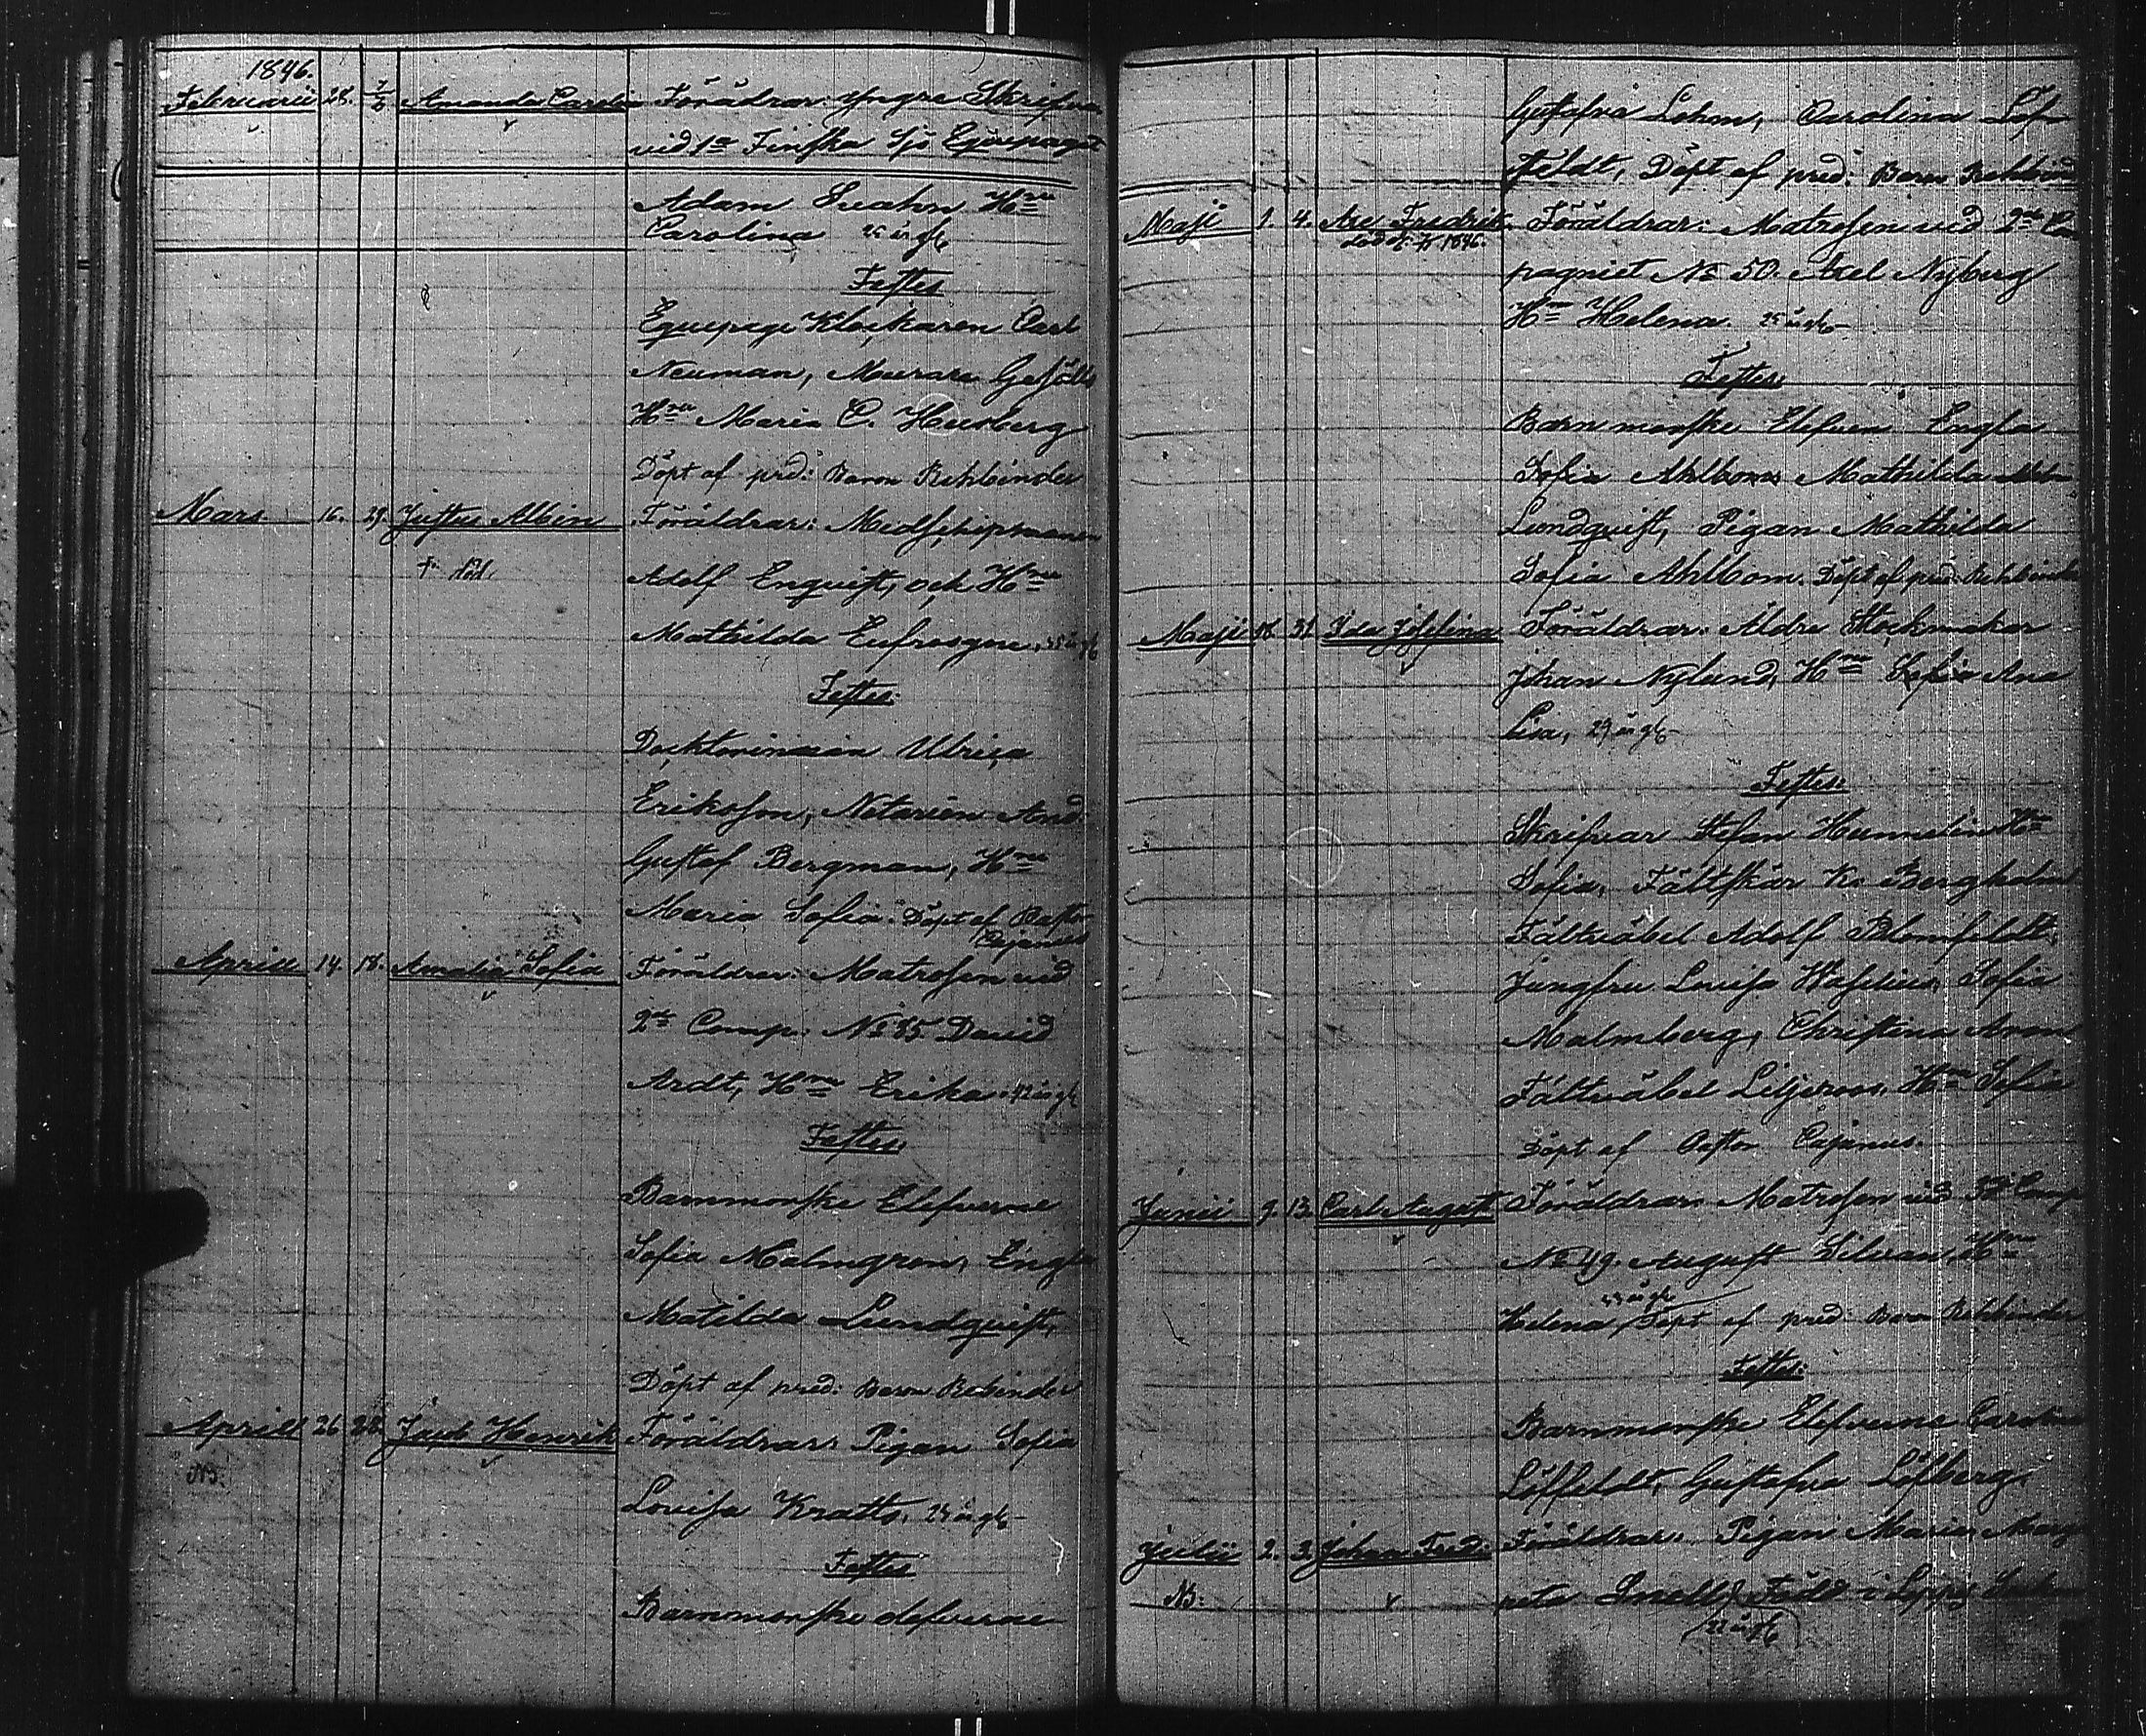 1846.
Februarii 28. 7/3 Amanda Carolin Förädrar: Yngre Skrifva
vid 1a Finska Sjö Equipaget
Adam Svahn Hru
Carolina 25 år gl
Testes
Equipage Klockaren Carl
Neuman, Murare Gesälls
Hru Maria C. Heusberg
Döpt af pred: Baron Rehbinder
Mars 16. 29. Justus Albin Föräldrar: Midshipmannen
† död. Adolf Enquist, och Hru
Mathilda Eufrosyne,
Testes:
Docktorinnan Ulrica
Erikson, Notarien And
Gustaf Bergman, Hru
Maria Sofia. Döpt af Pastor
Cajanus
Aprill 14. 18. Amalia Sofia Föräldrar: Matrosen vid
2dra Comp: No 35 David
Ardt, Hru Erika. 42 år gl
Testes
Barnmorske Elefverne
Sofia Malmgren, Engla
Matilda Lundquist,
Döpt af pred: Baron Rebinder
Aprill 26 28. Jacob Henrik Föräldrar: Pigan Sofia
NB. Lovisa Kratts, år gl
Testes
Barnmorske elefverne
Gustafva Lohm, Carolina Löf
feldt, Döpt af pred: Baron Rehbind
Maji 1. 4. Axel Fredrik Föräldrar: Matrosen vid 2dra Com
död 1846. pagniet No 50. Axel Nyberg
Hru Helena. 25 år gl
Testes
Barnmorske Elefven Engla
Sofia Ahlbom Mathilda
Lundquist, Pigan Mathilda
Sofia Ahlbom. Döpt af pred: Rehbinder
Maji 18. 31. Ida Josefina Föräldrar: Äldre Stockmakar
Johan Nylund, Hru Sofia Ana
Lisa, 29 år gl
Testes:
Skrifvar Stefan Hummelin Hru
Sofia, Fältskär K. Bergholm
Fältväbel Adolf Blomfeldt,
Jungfru Lovisa Haselius, Sofia
Malmberg, Christina
Fältväbel Liljeroos, Hru Sofia
Döpt af Pastor Cajanus.
Junii 9. 13. Carl August Föräldrar: Matrosen vid Comp
No 49. August Silvan, Hru
år gl
Helena, Döpt af pred: Baron Rehbinder
Testes:
Barnmorske Elefverne Carolina
Löffeldt, Gustafva Löfberg.
Julii 2. 3. Johan Fred: Föräldrar: Pigan Maria Marga
NB: reta Snell, Född i
22 år gl